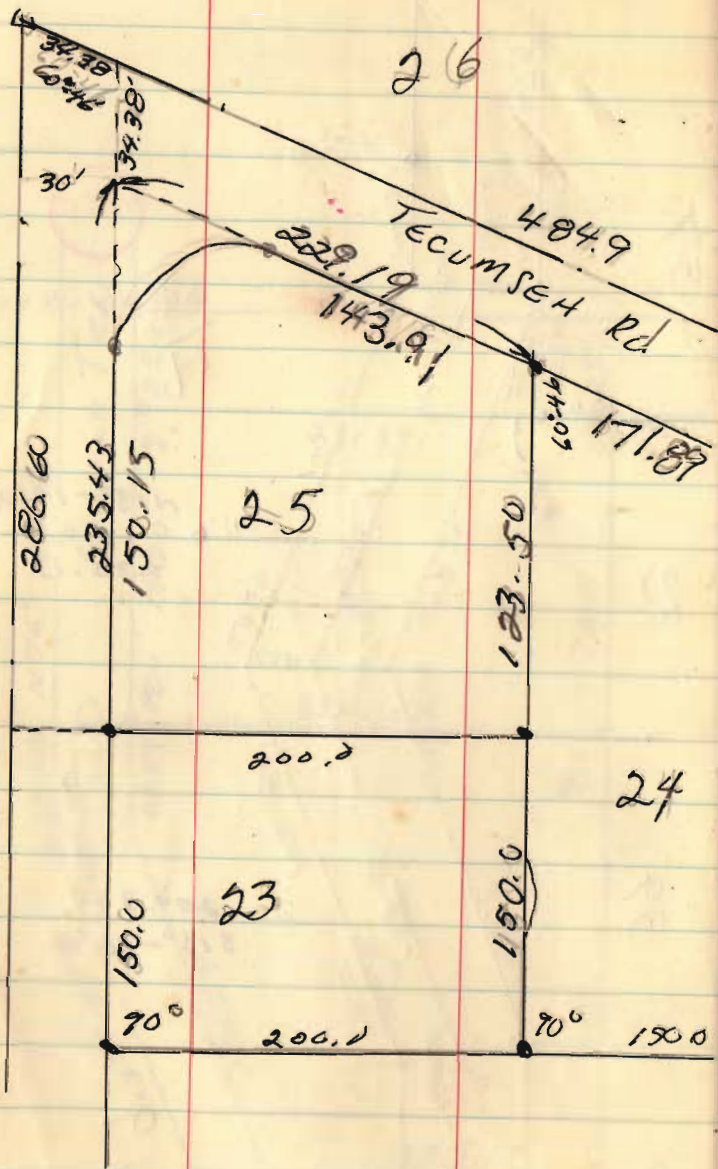 26
34.38
60°46'
34.38'
30'
TECUMSEH Rd
484.9
229.19
143.91
60°46
171.89
286.60
235.43
150.15
25
123.50
200.0
24
23
150.0
150.0
90°
200.0
90°
150.0